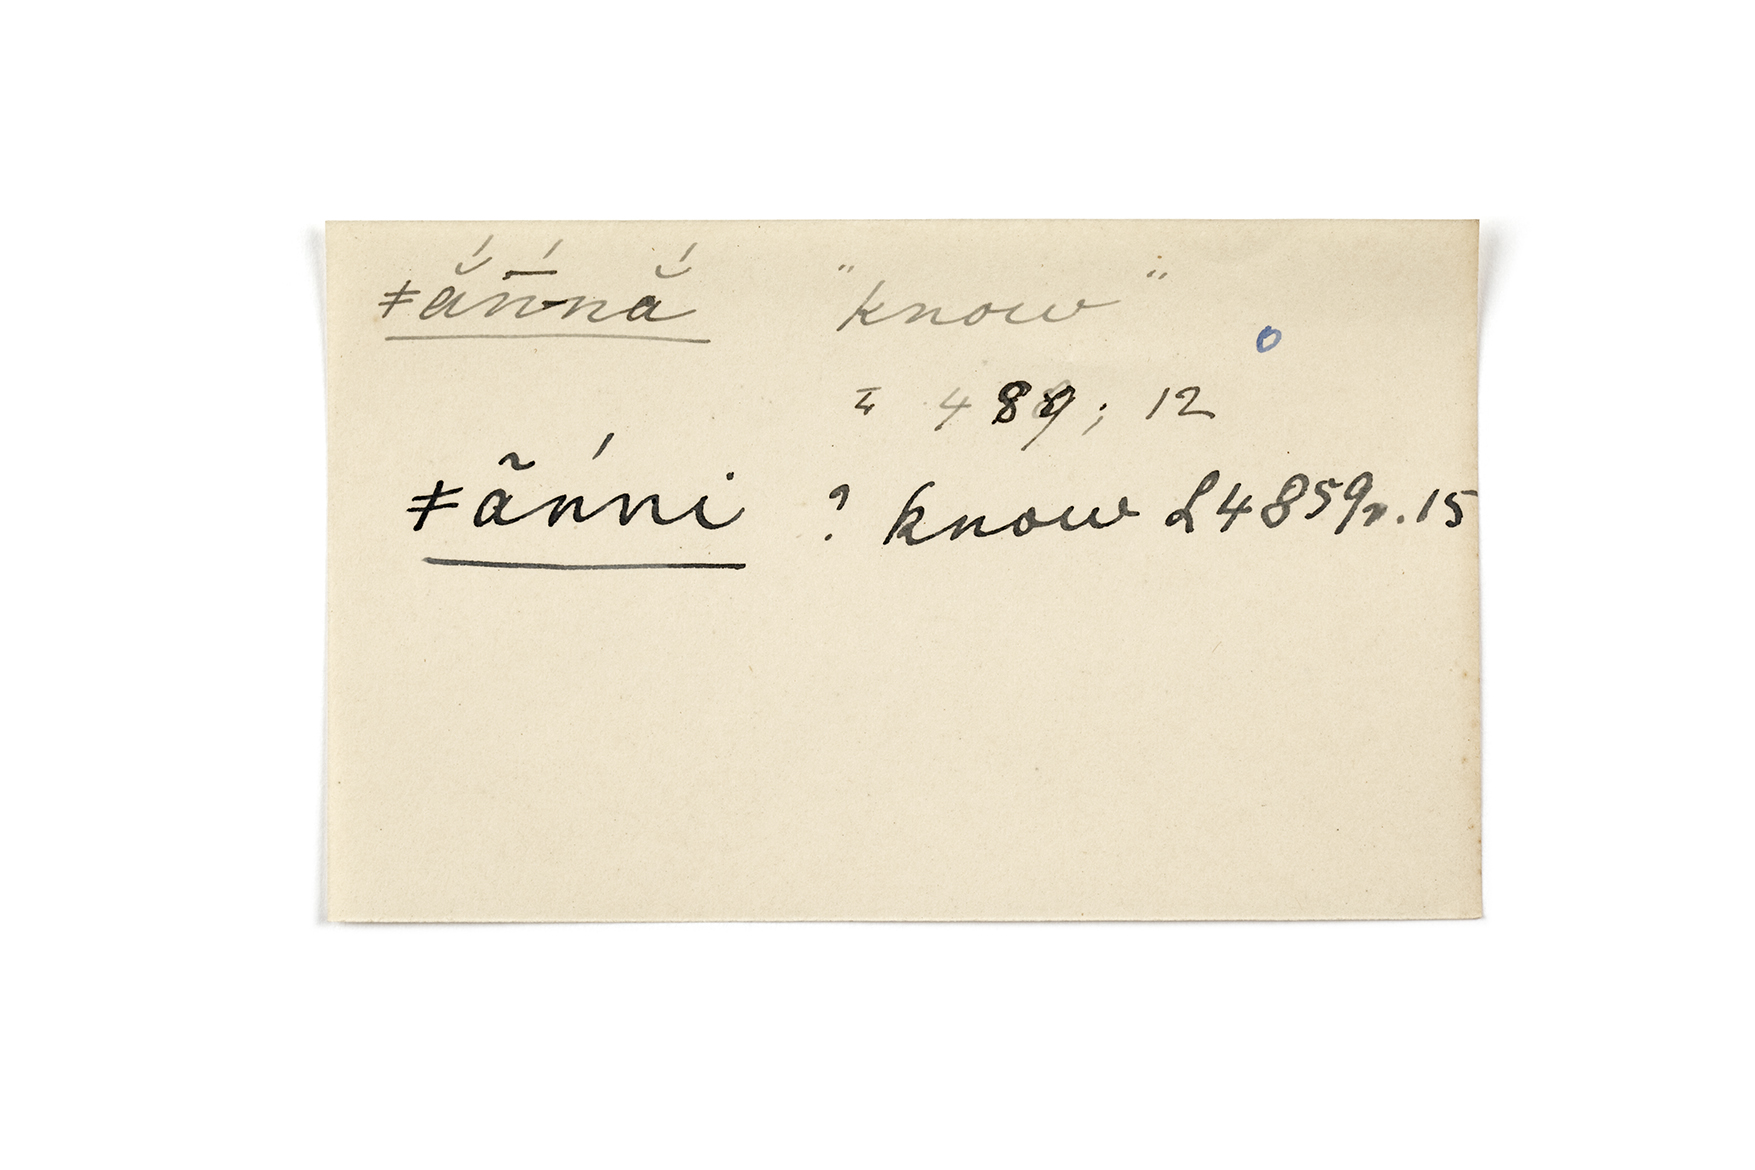 ǂắn̄́nắ "know"
o
I 489; 12
ǂãńni ? know L4859n.15